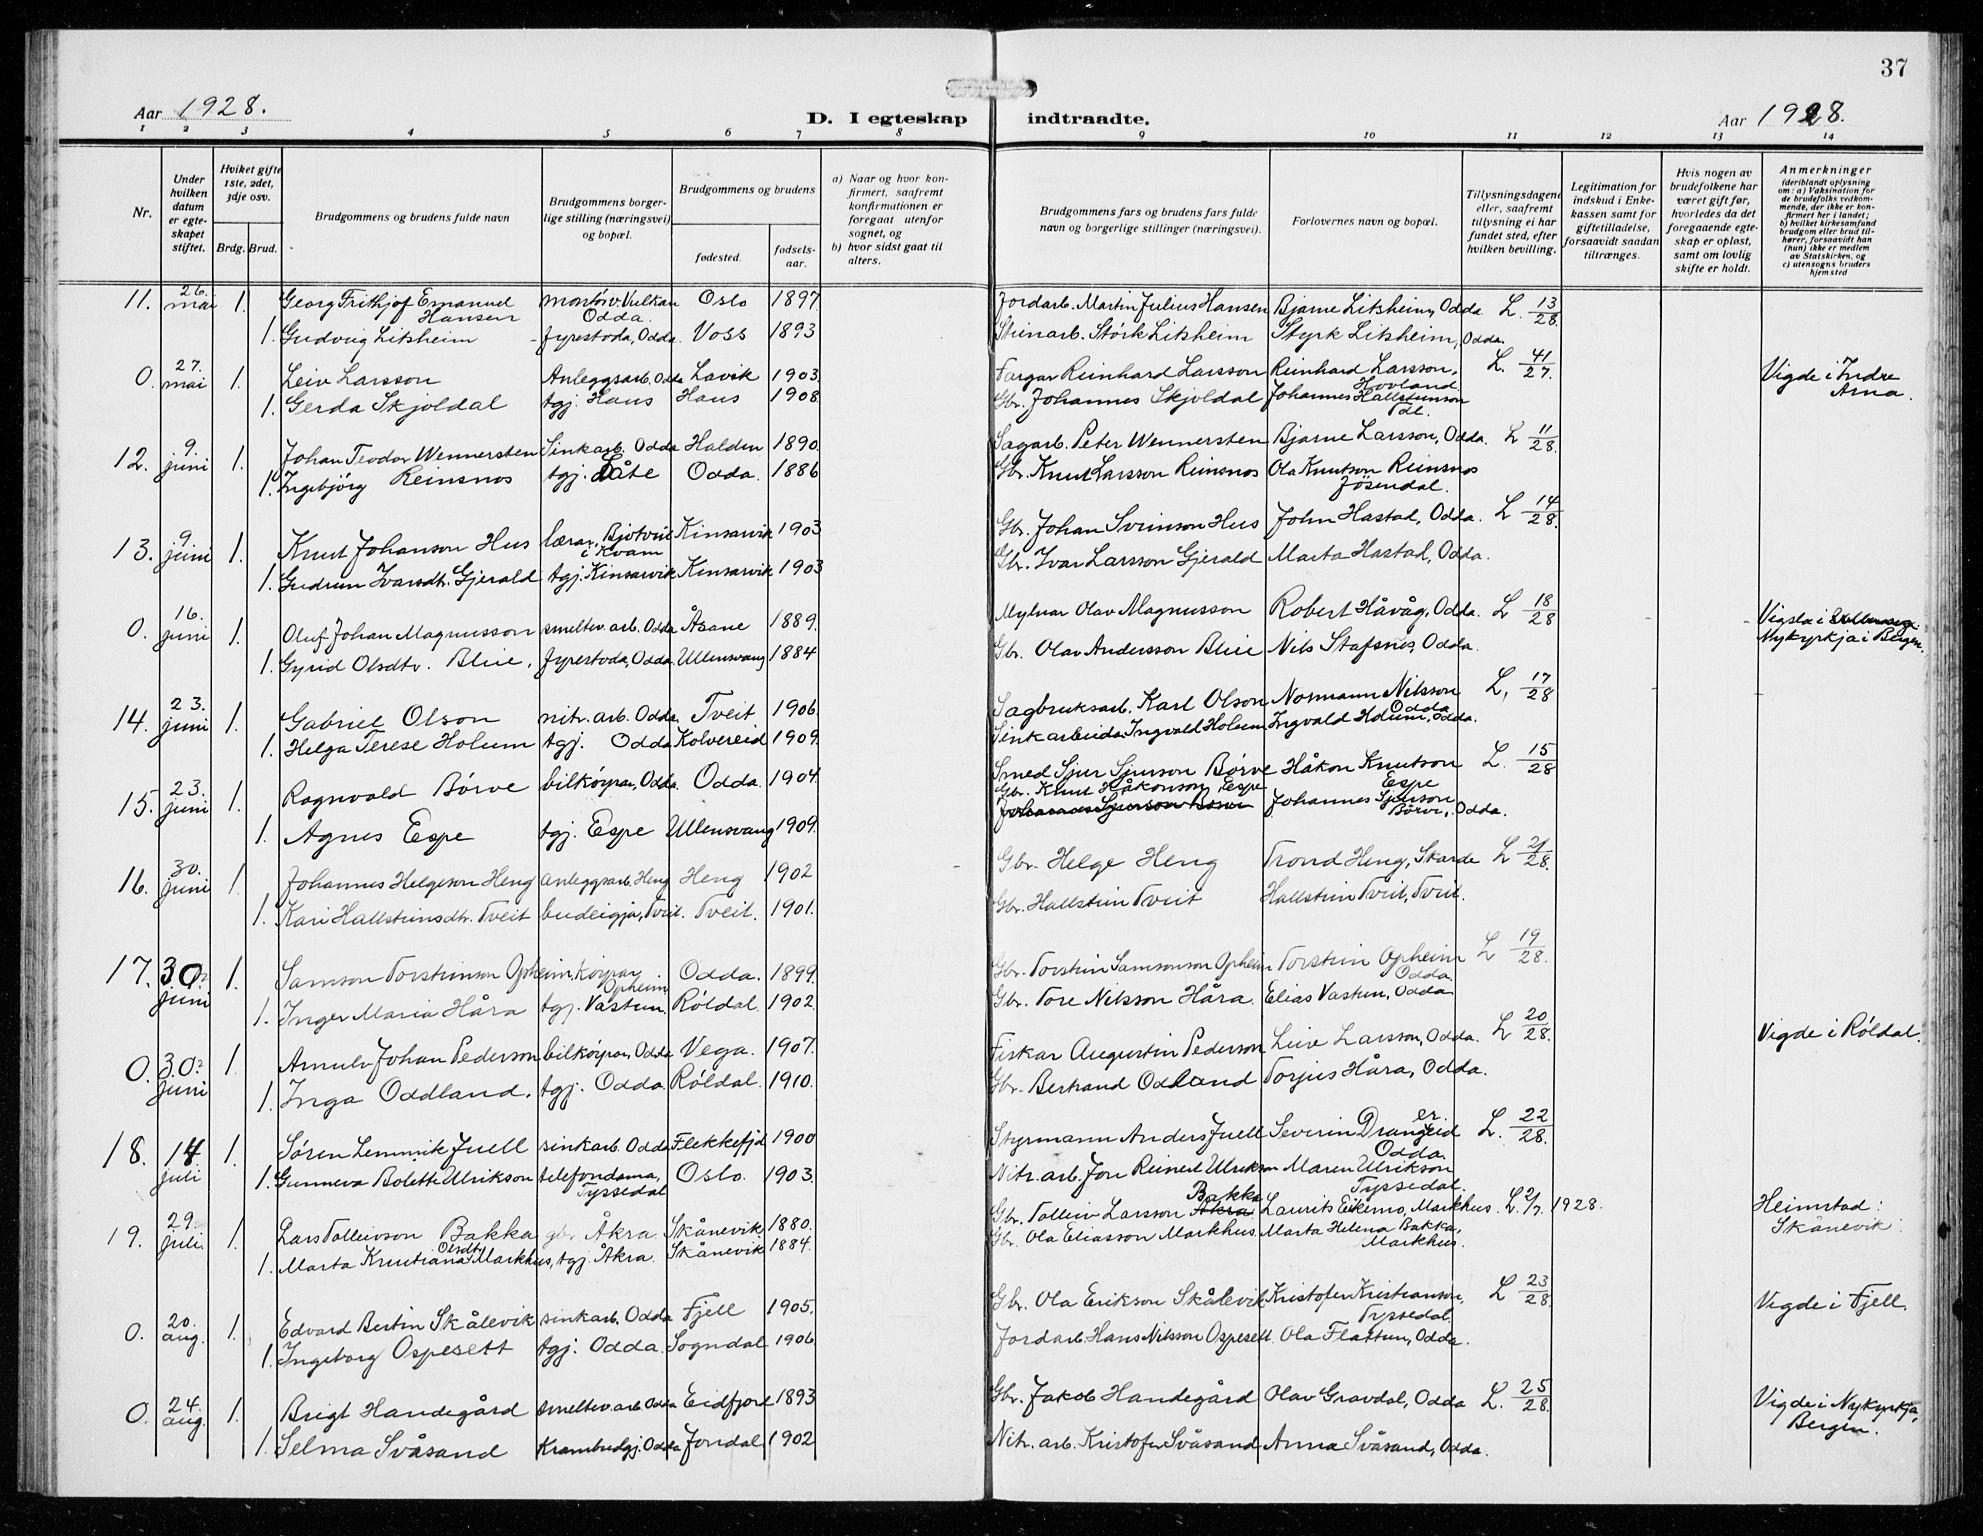 37
Aar 1928.
D. I egteskap indtraadte.
Aar 1928.
1 2 3 4 5 6 7 8 9 10 11 12 13 14
Nr.
Under hvilken datum er egteskapet stiftet.
Hviket gifte 1ste, 2det, 3dje osv.
Brdg. Brud.
Brudgommens og brudens fulde navn
Brudgommens borgerlige stilling (næringsvei) og bopæl.
Brudgommens og brudens
fødested.
fødselsaar.
a) Naar og hvor konfirmert, saafremt konfirmationen er foregaat utenfor sognet, og
b) hvor sidst gaat til alters.
Brudgommens fars og brudens fars fulde navn og borgerlige stillinger (næringsvei).
Forlovernes navn og bopæl.
Tillysningsdagene eller, saafremt tillysning ei har fundet sted, efter hvilken bevilling.
Legitimation for indskud i Enkekassen samt for giftetilladelse, forsaavidt saadan tiltrænges.
Hvis nogen av brudefolkene har været gift før, hvorledes da det foregaaende egteskap er opløst, samt om lovlig skifte er holdt.
Anmerkninger
(deriblandt oplysning om: a) Vaksination for de brudefolks vedkommende, der ikke er konfirmert her i landet; b) hvilket kirkesamfund brudgom eller brud tilhører, forsaavidt han (hun) ikke er medlem av Statskirken, og c) utensogns bruders hjemsted
11. 26. mai 1. Georg Frithjof Emanuel Hansen montörv. Vulkan Odda. Oslo 1897 Jordarb. Martin Julius Hansen Bjarne Litsheim, Odda L. 13/28.
1. Gudvig Litsheim fyrestoda, Odda Voss 1893 Steinarb. Störk Litsheim Styrk Litsheim, Odda.
0. 27. mai 1. Leiv Larsson Anleggsarb. Odda Lavik 1903. Fargar Reinhard Larsson Reinhard Larsson, Hovland L. 41/27. Vigde i Indre Arna.
1. Gerda Skjoldal tgj. Haus Haus 1908. Gbr. Johannes Skjoldal Johannes Hallsteinson
12. 9. juni 1. Johan Teodor Wennersten Sinkarb. Odda Halden 1890. Sagarb. Peter Wennersten Bjarne Larsson, Odda. L 11/28.
1. Ingebjörg Reinsnos tgj. Låte Odda. 1886 Gbr. Knut Larsson Reinsnos Ola Knutson Reinsnos Jösendal.
13. 9. juni 1. Knut Johanson Hus lærar, i Kvam Kinsarvik 1903 Gbr. Johan Sveinson Hus John Hastad, Odda. L 14/28.
1. Gudrun Ivarsdtr. Gjerald tgj. Kinsarvik Kinsarvik 1903 Gbr. Ivar Larsson Gjerald Marta Hastad, Odda.
0. 16. juni 1. Oluf Johan Magnusson smeltev. arb. Odda Åsane 1889. Mylnar Olav Magnusson Robert Håvåg, Odda. L 18/28 Vigsla i Nykyrkja i Bergen.
1. Gyrid Olsdtr. Bleie, fyrestoda, Odda Ullensvang 1884 Gbr. Olav Andersson Bleie Nils Stafsnes, Odda.
14. 23. juni 1. Gabriel Olson nitr. arb. Odda Tveit 1906. Sagbruksarb. Karl Olson Normann Nilsson Odda L. 17/28
1. Helga Terese Holum tgj. Odda Kolvereid 1909. Sinkarbeidar Ingvald Holum Ingvald Holum, Odda.
15. 23. juni 1. Ragnvald Börve bilköyrar, Odda Odda. 1904. Smed Sjur Sjurson Börve Håkon Knutson Espe L. 15/28
1. Agnes Espe tgj. Espe Ullensvang 1909. Gbr. Knut Håkonson Espe Johannes Sjurson Börve, Odda.
16. 30. juni 1. Johannes Helgeson Heng anleggsarb. Heng Heng 1902 Gbr. Helge Heng Trond Heng, Skarde L 21/28.
1. Kari Hallsteinsdtr. Tveit budeigja, Tveit. Tveit. 1901. Gbr. Hallstein Tveit Hallstein Tveit, Tveit.
17. 30. juni 1. Samson Torsteinson Opheim, köyrar Opheim Odda. 1899. Gbr. Torstein Samsonson Opheim Torstein Opheim Odda L 19/28.
1. Inger Maria Håra tgj. Vastun Röldal 1902. Gbr. Tore Nilsson Håra. Elias Vastun, Odda
0. 30. juni 1. Arnulv Johan Pederson bilköyrar, Odda Vega. 1907. Fiskar Augustin Pederson Leive Larsson, Odda. L 20/28. Vigde i Röldal.
1. Inga Oddland. tgj. Odda Röldal. 1910. Gbr. Bertrand Oddland Torjus Håra, Odda.
18. 14. juli 1. Sören Lemmik Juell sinkarb. Odda Flekkefjd 1900 Styrmann Anders Juell Severin Drangeid Odda. L. 22/28.
1. Gunneva Bolette Ulrikson telefondama, Tyssedal Oslo. 1903. Nitr. arb. Jon Reinert Ulrikson Maren Ulrikson Tyssedal.
19. 29. juli. 1. Lars Tolleivson Bakka gbr. Åkra Skånevik 1880. Gbr. Tolleiv Larsson Bakka Laurits Eikemo, Markhus. L. 2/7. 1928. Heimstad: Skånevik
1. Marta Knutiana Olsdtr Markhus, tgj. Åkra Skånevik 1884. Gbr. Ola Eliasson Markhus. Marta Helena Bakka, Markhus.
0. 20. aug. 1. Edvard Bertin Skålevik sinkarb. Odda Fjell 1905. Gbr. Ola Erikson Skålevik Kristofer Kristianson, Tyssedal L 23/28. Vigde i Fjell.
1. Ingeborg Ospesett tgj. Odda. Sogndal 1906. Jordarb. Hans Nilsson Ospesett. Ola Flattun, Odda.
0. 24. aug. 1. Brigt Handegård smeltev. arb. Odda Eidfjord 1893 Gbr. Jakob Handegård Olav Gravdal, Odda L. 25/28. Vigde i Nykyrkja, Bergen.
1. Selma Svåsand Krambudgj. Odda Jondal 1902 Nitr. arb. Kristofer Svåsand Anna Svåsand, Odda.